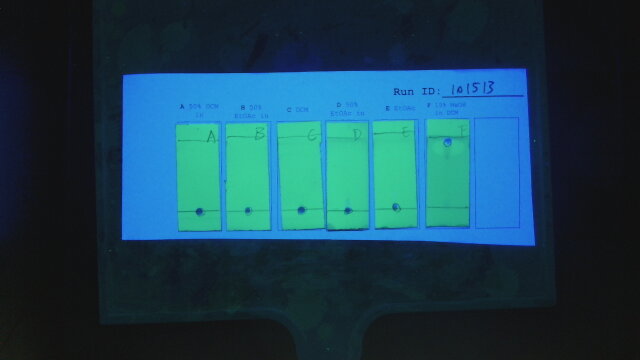 Run ID: 101513
A 50% DCM in
B 50% EtOAc in
C DCM
D 50% EtOAc in
E EtOAc
F 10% MeOH in DCM
A B C D E F